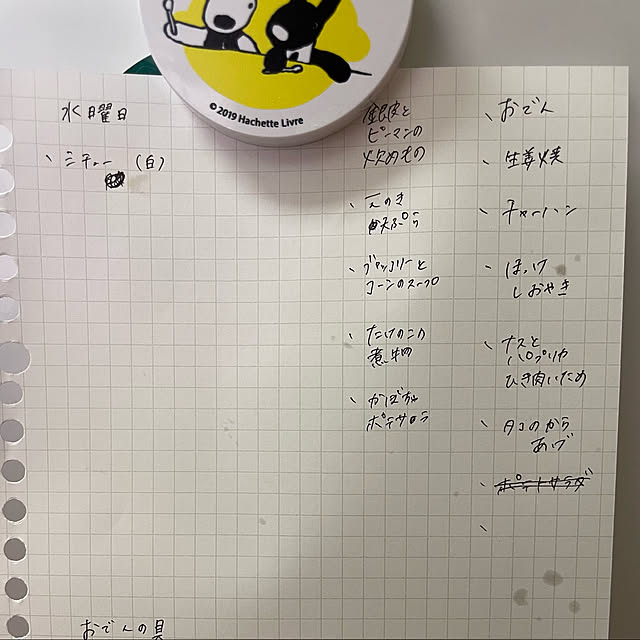 ©2019 Hachette Livre
水曜日
、シチュー (白)
ピーマンの
炒めもの
、えのき
天ぷら
、ブロッコリーと
コーンのスープ
、たけのこの
煮物
、かぼちゃ
ポテサラ
、おでん
、生姜焼
、チャーハン
、ほっけ
しおやき
、ナスと
パプリカ
ひき肉いため
、タコのから
あげ
、ポテトサラダ
、
おでんの具